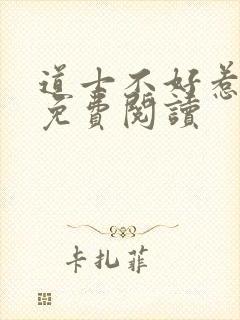 道士不好惹
免費閱讀
卡扎菲